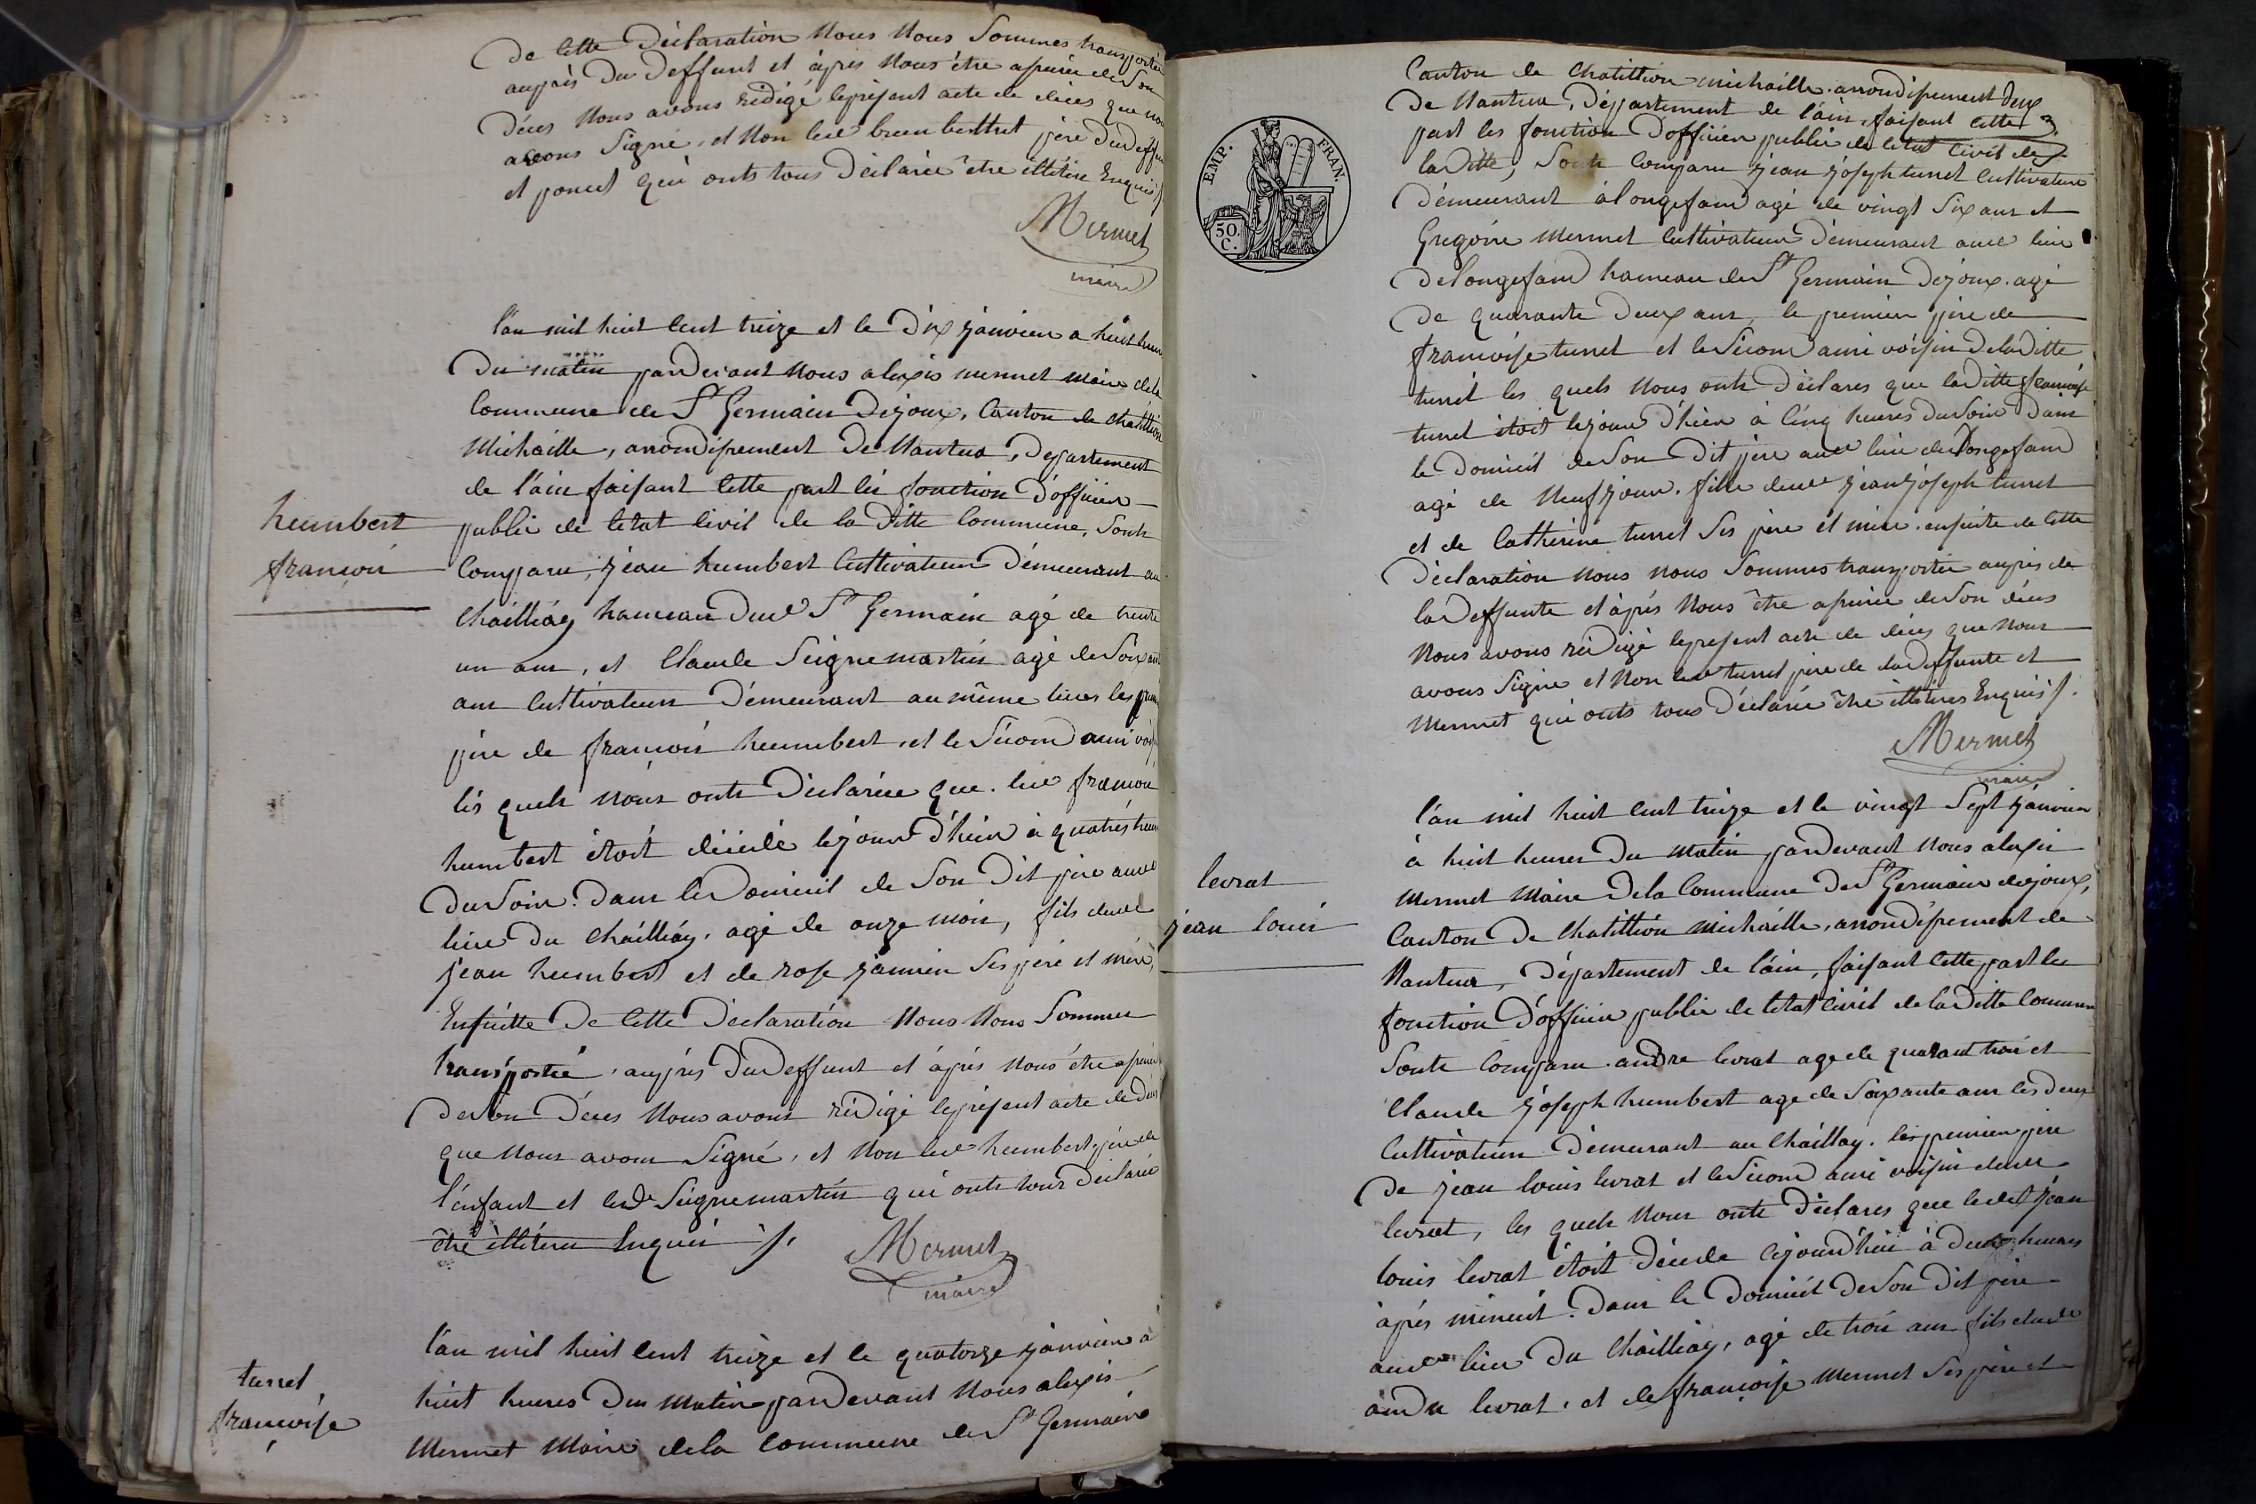 de cette déclaration nous nous sommes transportés
auprès du deffunt et après nous être assuré de son
décès nous avons rédigé le présent acte de décès que nous
avons signé, et non led père du deffunt
et poncet qui onts tous déclarée être illitéré Enquis
Mermet
maire
l'an mil huit cent treize et le dix janvier a huit heures
du matin pardevant nous alexis mermet maire de la
commune de St Germain Dejoux, Canton de chatillion
Michaille, arrondissement De Nantua, Departement
de l'ain faisant cette part les fonction d'officier
public de letat civil de la ditte Commune, sonts
comparu, jean humbert cultivateur démeurant au
chailliay hameau dud St Germain agé de trente
un ans, et Claude Seignemartin agé de soixante
ans cultivateurs démeurant au même lieu les premier
père de françois humbert et le sécond ami voisin
lés quels nous onts déclarée que led françois
humbert étoit décédé le jour d'hier à quatrés heures
du soir dans le domicil de son dit père aud
lieu du chailliay, agé de onze mois, fils dud
jean humbert et de rose janin ses père et mère,
Ensuitte de cette déclaration nous nous sommes
transporté auprès du deffunt et après nous être assuré
de son décès nous avons rédigé le présent acte de décès
que nous avons signé, et non led humbert père de
l'enfant et led Seignemartin qui onts tous déclarée
être illitéré Enquis
Mermet
maire
l'an mil huit cent treize et le quatorze janvier à
huit heures du matin pardevant nous alexis
Mermet Maire de la commune de St Germain
humbert
françois
turrel
françoise
EMP. FRAN.
50.
C.
Canton de chatillion michaille arrondissement
de Nantua, Département de l'ain, faisant cette
part les fonction d'officier public de letat civil de
laditte, sonts comparu jean joseph turrel cultivateur
démeurant à longefand agé de vingt six ans et
Grégoire Mermet cultivateur démeurant aud lieu
de longefand hameau de St Germain dejoux agé
de quarante deux ans, le premier père de
françoise turrel et le sécond ami voisin de laditte
turrel les quels nous onts déclarés que laditte françoise
turrel étoit le jour d'hier à cinq heures du soir dans
le domicil de son dit père aud lieu de longefand
agé de neuf jours, fille dud jean joseph turrel
et de Catherine turrel ses père et mère, ensuite de cette
déclaration nous nous sommes transportée auprès de
la deffunte et après nous être assuré de son décès
nous avons rédigé le présent acte de décès que nous
avons signé et non led turrel père de la deffunte et
Mermet qui onts tous déclarée être illitérés Enquis
Mermet
maire
l'an mil huit cent treize et le vingt sept janvier
à huit heures du matin pardevant nous alexis
Mermet Maire de la Commune de St Germain dejoux,
Canton de chatillion michaille, arrondissement de
Nantua, Département de l'ain, faisant cette part les
fonction d'officier public de letat civil de la ditte commune
sonts comparu andre levrat age de quarant trois et
Claude joseph humbert age de soixante ans les deux
cultivateurs démeurant au chaillay, les premier père
de jean louis levrat et le sécond ami voisin dud
levrat, les quels nous onts déclarés que ledit jean
louis levrat étoit décédé cejourd'hui à deux heures
après minuit dans le domicil de son dit père
aud lieu du chailliay, agé de trois ans fils dud
andre levrat, et de françoise Mermet ses père et
levrat
jean louis